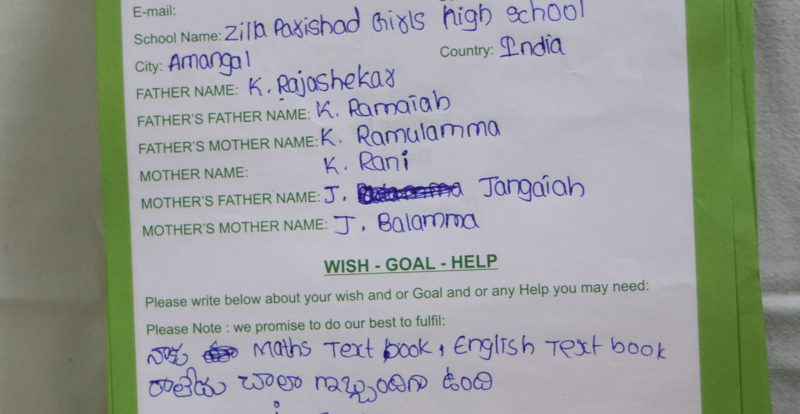 E-mail:
School Name: Zilla Parishad Girls high school
City: Amangal Country: India
FATHER NAME: K. Rajashekar
FATHER'S FATHER NAME: K. Ramaiah
FATHER'S MOTHER NAME: K. Ramulamma
MOTHER NAME: K. Rani
MOTHER'S FATHER NAME: J. Jangaiah
MOTHER'S MOTHER NAME: J. Balamma
WISH - GOAL - HELP
Please write below about your wish and or Goal and or any Help you may need:
Please Note : we promise to do our best to fulfil:
నాకు Maths Text book, English Text book
రాలేదు చాలా ఉంది